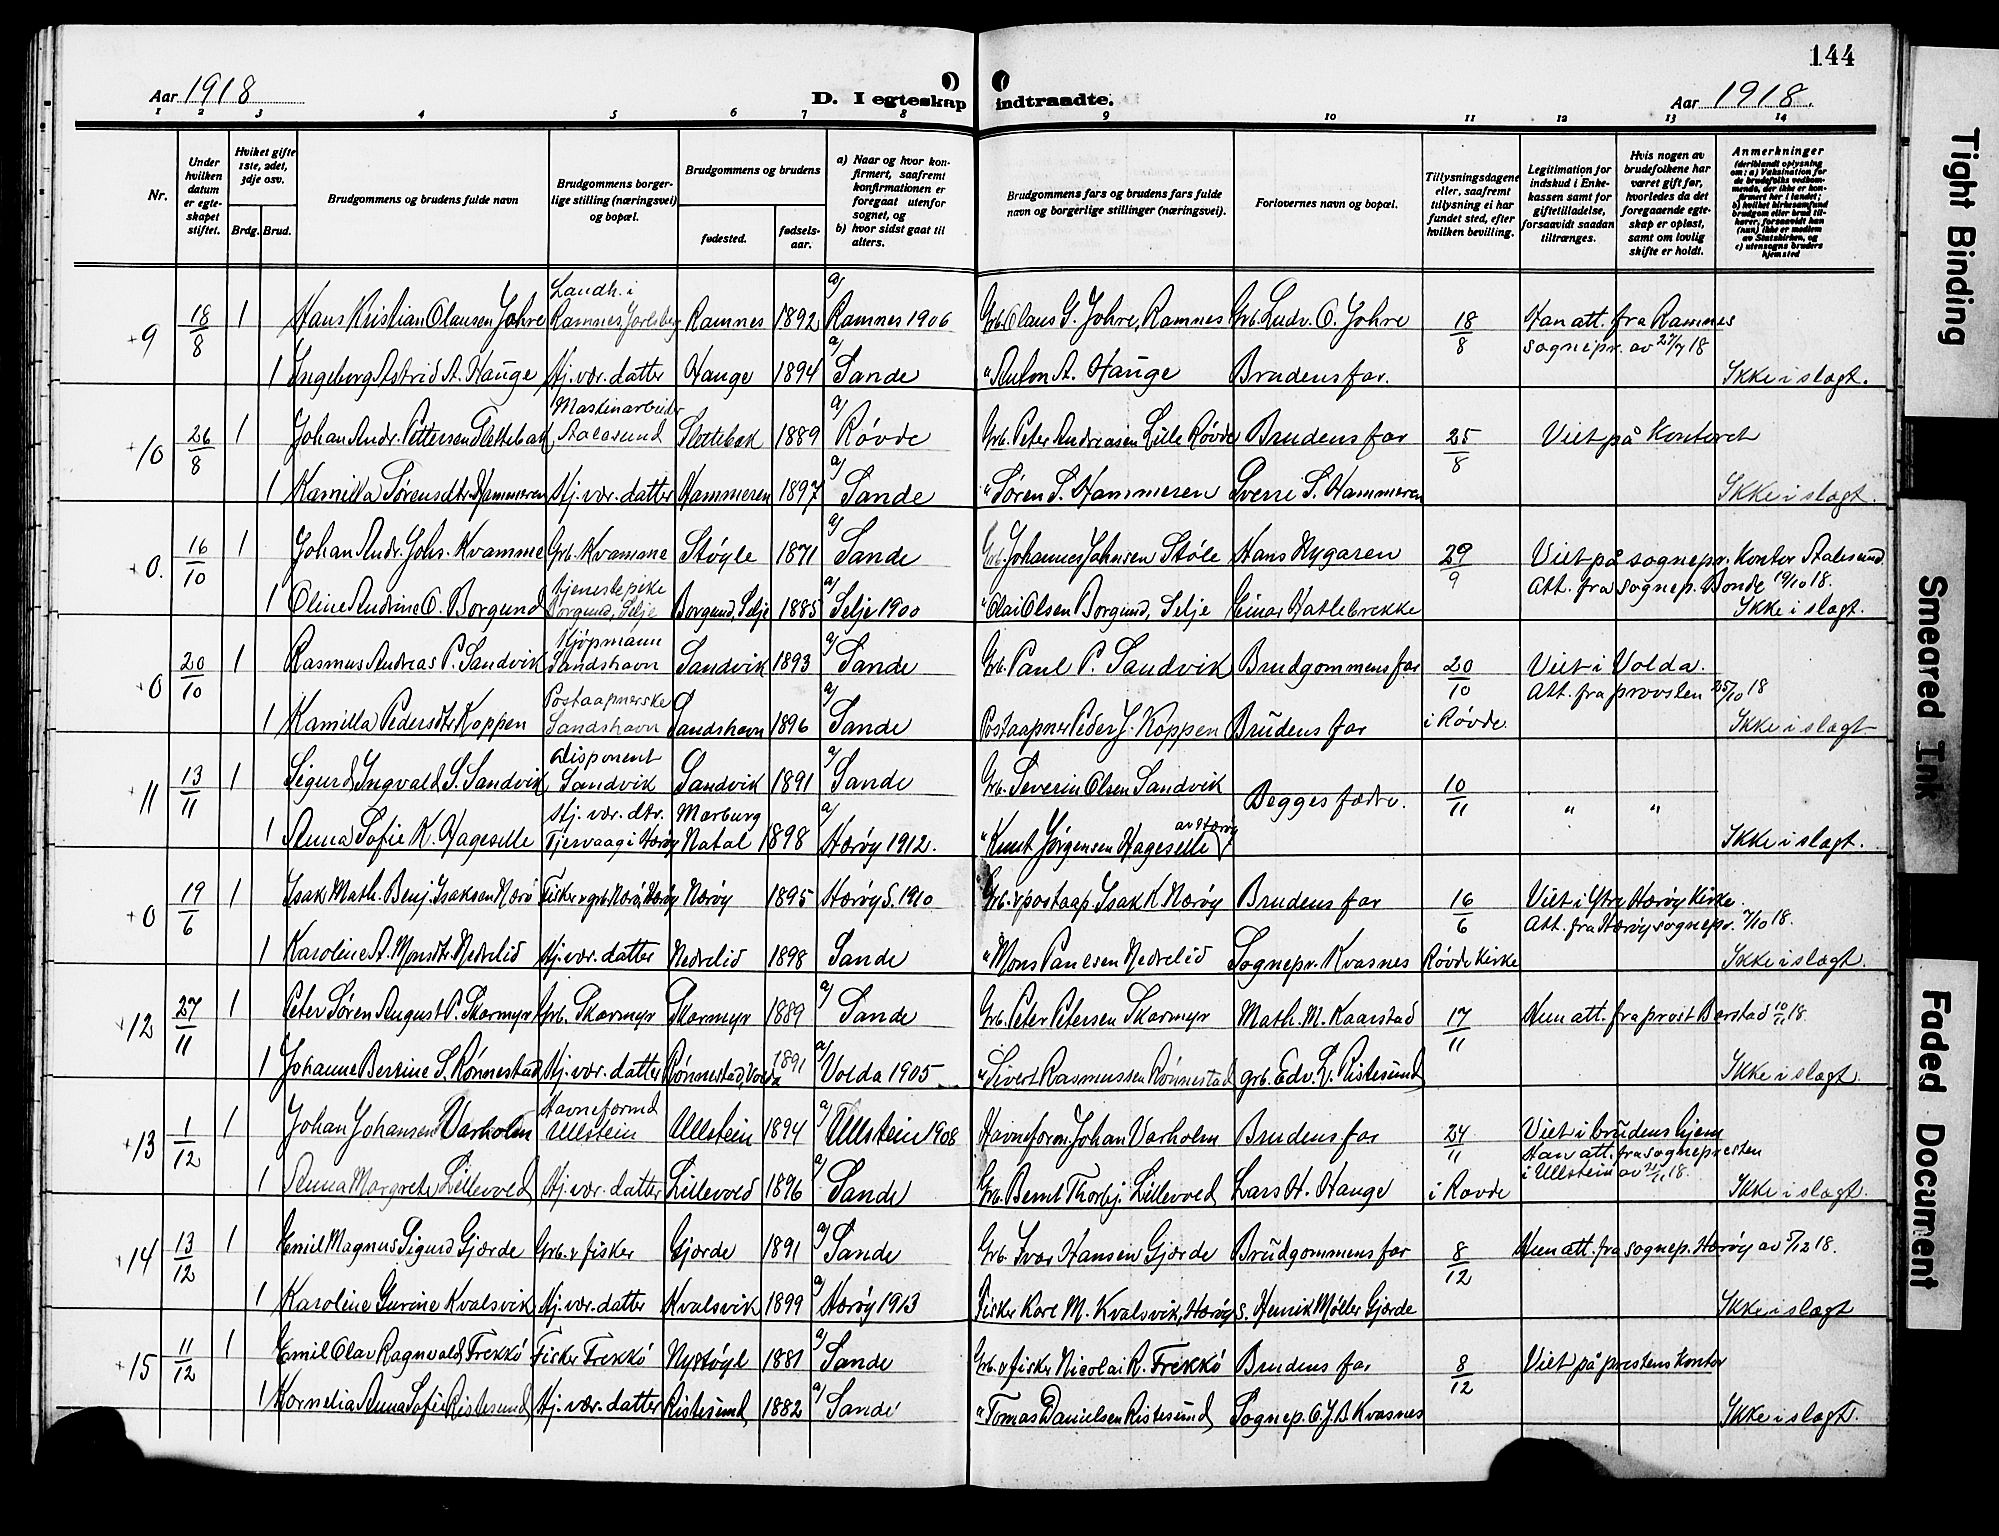 144
Aar 1918
D. I egteskap indtraadte.
Aar 1918.
1 2 3 4 5 6 7 8 9 10 11 12 13 14
Nr.
Under hvilken datum er egteskapet stiftet.
Hvilket gifte 1ste, 2det, 3dje osv.
Brdg. Brud.
Brudgommens og brudens fulde navn
Brudgommens borgerlige stilling (næringsvei) og bopæl.
Brudgommens og brudens
fødested.
fødselsaar.
a) Naar og hvor konfirmert, saafremt konfirmationen er foregaat utenfor sognet, og
b) hvor sidst gaat til alters.
Brudgommens fars og brudens fars fulde navn og borgerlige stillinger (næringsvei).
Forlovernes navn og bopæl.
Tillysningsdagene eller, saafremt tillysning ei har fundet sted, efter hvilken bevilling.
Legitimation for indskud i Enkekassen samt for giftetilladelse, forsaavidt saadan tiltrænges.
Hvis nogen av brudefolkene har været gift før, hvorledes da det foregaaende egteskap er opløst, samt om lovlig skifte er holdt.
Anmerkninger (deriblandt oplysning om: a) Vaksination for de brudefolks vedkommende, der ikke er konfirmert her i landet; b) hvilket kirkesamfund brudgom eller brud tilhører, forsaavidt han (hun) ikke er medlem av Statskirken, og c) utensogns bruders hjemsted
+9 18/8 1 Hans Kristian Olausen Johre Landh. i Ramnes, Jarlsberg Ramnes 1892 a/ Ramnes 1906 Grb. Olaus G. Johre, Ramnes Grb. Ludv. O. Johre 18/8 Han att. fra Ramnes sognepr. av 27/7 18
1 Ingeborg Astrid A. Hauge Hj. vær. datter Hauge 1894 a/ Sande " Anton A. Hauge Brudens far. Ikke i slægt.
+10 26/8 1 Johan Andr. Pettersen Slettebak Maskinarbeider Aalesund Slettebak 1889 a/ Røvde Grb. Peter Andreasen Lille Røvde Brudens far 25/8 Viet på kontoret
1 Kamilla Sørensdtr. Hammeren Hj. vær. datter Hammeren 1897 a/ Sande " Søren S. Hammeren Sverre S. Hammeren Ikke i slægt.
+0. 16/10 1 Johan Andr. Johs. Kvamme Grb. Kvamme Støyle 1871 a/ Sande Grb. Johannes Johnsen Støle Hans Nygaren 29/9 Viet på sognepr. kontor Aalesund. Att. fra sognep. Bonde 19/10 18.
1 Oline Andrine O. Borgund tjenestepike Borgund, Selje Borgund, Selje 1885 a/ Selje 1900 " Olai Olsen Borgund, Selje Einar Hatlebrekke Ikke i slægt.
+0 20/10 1 Rasmus Andreas P. Sandvik Kjøpmann Sandshavn Sandvik 1893 a/ Sande Grb. Paul P. Sandvik Brudgommens far 20/10 Viet i Volda. Att. fra provsten 25/10 18
1 Kamilla Pedersdtr Koppen Postaapnerske Sandshavn Sandshavn 1896 a/ Sande Postaapner Peder J. Koppen Brudens far i Røvde. Ikke i slægt
+11 13/11 1 Sigurd Ingvald S. Sandvik Disponent Sandvik Sandvik 1891 a/ Sande Grb. Severin Olsen Sandvik Begges fædre. 10/11 " "
1 Anna Sofie K. Hageselle Hj. vær. dtr. Tjervaag i Herøy Marburg Natal 1898 a/ Herøy 1912. " Knut Jørgensen Hageselle av Herøy Ikke i slægt.
+0 19/6 1 Isak Math. Benj. Isaksen Nærø Fisker v grb. Nærø, Herøy Nærøy 1895 Herøy S. 1910 Grb. v postaap. Isak K. Nærøy Brudens far 16/6 Viet i Ytre Herøy kirke. Att. fra Herøy sognepr. 7/10 18.
1 Karoline A. Monsdtr. Nedrelid Hj. vær. datter Nedrelid 1898 Sande " Mons Paulsen Nedrelid Sognepr. Kvasnes Røvde kirke Ikke i slægt.
+12 27/11 1 Peter Søren August P. Skarmyr Grb. Skarmyr Skarmyr 1889 a/ Sande Grb. Peter Petersen Skarmyr Math. M. Kaarstad 17/11 Hun att. fra prost Barstad 10/11 18.
1 Johanne Bertine S. Rønnestad Hj. vær. datter Rønnestad, Volda 1891 a/ Volda 1905 " Sivert Rasmussen Rønnestad grb. Edv. L. Ristesund Ikke i slægt.
+13 1/12 1 Johan Johansen Varholm Havneformd Ullstein Ullstein 1894 a/ Ullstein 1908 Havneform. Johan Varholm Brudens far 24/11 Viet i brudens hjem Han att. fra sognepresten i Ullstein av 21/11 18.
1 Anna Margrete Lillevold Hj. vær. datter Lillevold 1896 a/ Sande Grb. Bernt Thorbj. Lillevold Lars H. Hauge i Røvde Ikke i slægt.
+14 13/12 1 Emil Magnus Sigurd Gjærde Grb. v fisker Gjerde 1891 a/ Sande Grb. Ivar Hansen Gjærde Brudgommens far 8/12 Hun att. fra sognep. Herøy av 5/12 18.
1 Karoline Gurine Kvalsvik Hj. vær. datter Kvalsvik 1899 a/ Herøy 1913 Fisker Karl M. Kvalsvik, Herøy S. Henrik Møller Gjærde Ikke i slægt
+15 11/12 1 Emil Olav Ragnvald Frekkø Fisker Frekkø Nystøyl 1881 a/ Sande Grb. v fisker Nicolai R. Frekkø Brudens far 8/12 Viet på prestens kontor
1 Kornelia Anna Sofie Ristesund Hj. vær. datter Ristesund 1882 a/ Sande " Tomas Danielsen Ristesund Sognep. O. J. B. Kvasnes Ikke i slægt.
Tight Binding
Smeared Ink
Faded Document